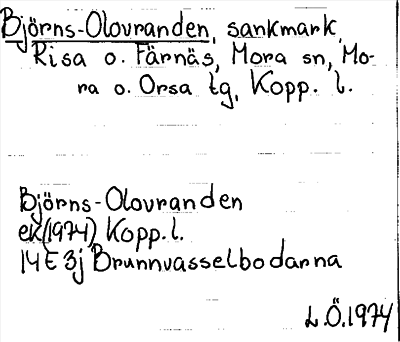 Björns-Olovranden, sankmark,
Risa o. Färnäs, Mora sn, Mo-
ra o. Orsa tg, Kopp. l.
Björns-Olovranden
ek(1974) Kopp. l.
14E 3j Brunnvasselbodarna
L.Ö.1974